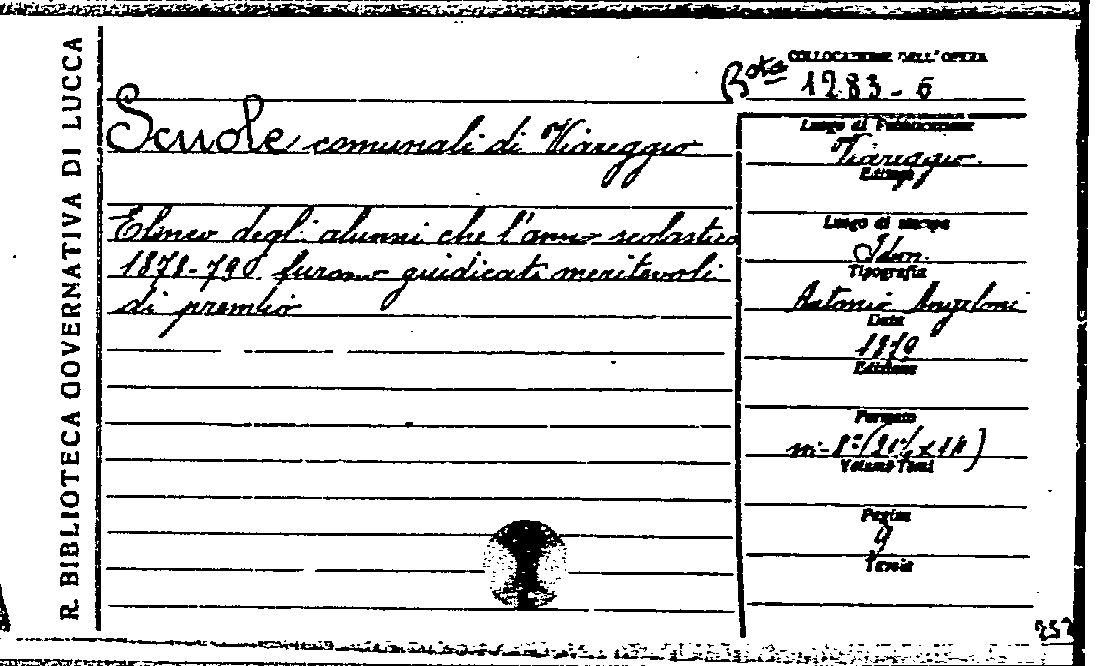 R. BIBLIOTECA GOVERNATIVA DI LUCCA
COLLOCAZIONE DELL'OPERA
Bta 1283-6
Scuole comunali di Viareggio
Elenco degli alunni che l'anno scolastico
1878-79 furono giudicati meritevoli
di premio
Luogo di Pubblicazione
Viareggio.
Editore
Luogo di stampa
Idem.
Tipografia
Antonio Angeloni
Data
1879
Edizione
Formato
in-8°
Volumi-Tomi
Pagine
9
Tavole